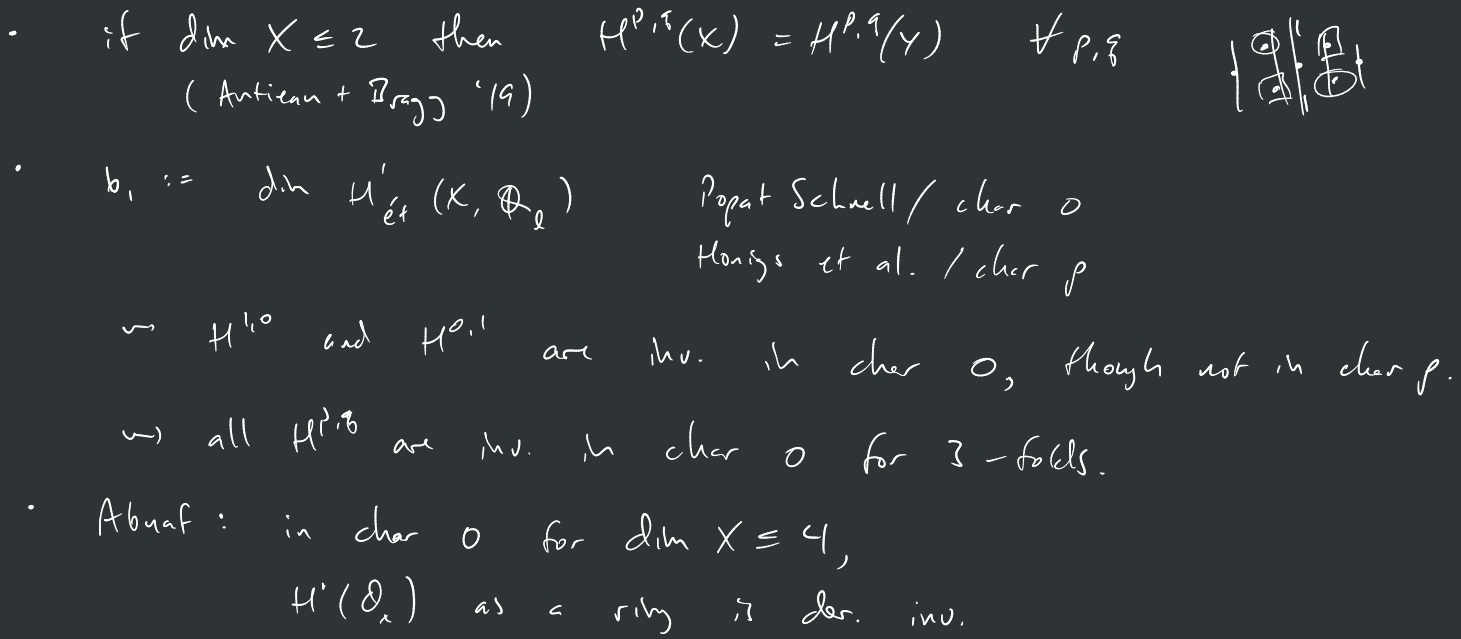 · if dim X ≤ 2 then H^{p,q}(X) = H^{p,q}(Y) ∀ p,q
(Antieau + Bragg '19)
· b₁ := dim H¹_ét (X, ℚ_ℓ) Popat Schnell / char 0
Honigs et al. / char p
⇝ H^{1,0} and H^{0,1} are inv. in char 0, though not in char p.
⇝ all H^{p,q} are inv. in char 0 for 3-folds.
· Abuaf : in char 0 for dim X ≤ 4,
H^•(O_x) as a ring is der. inv.